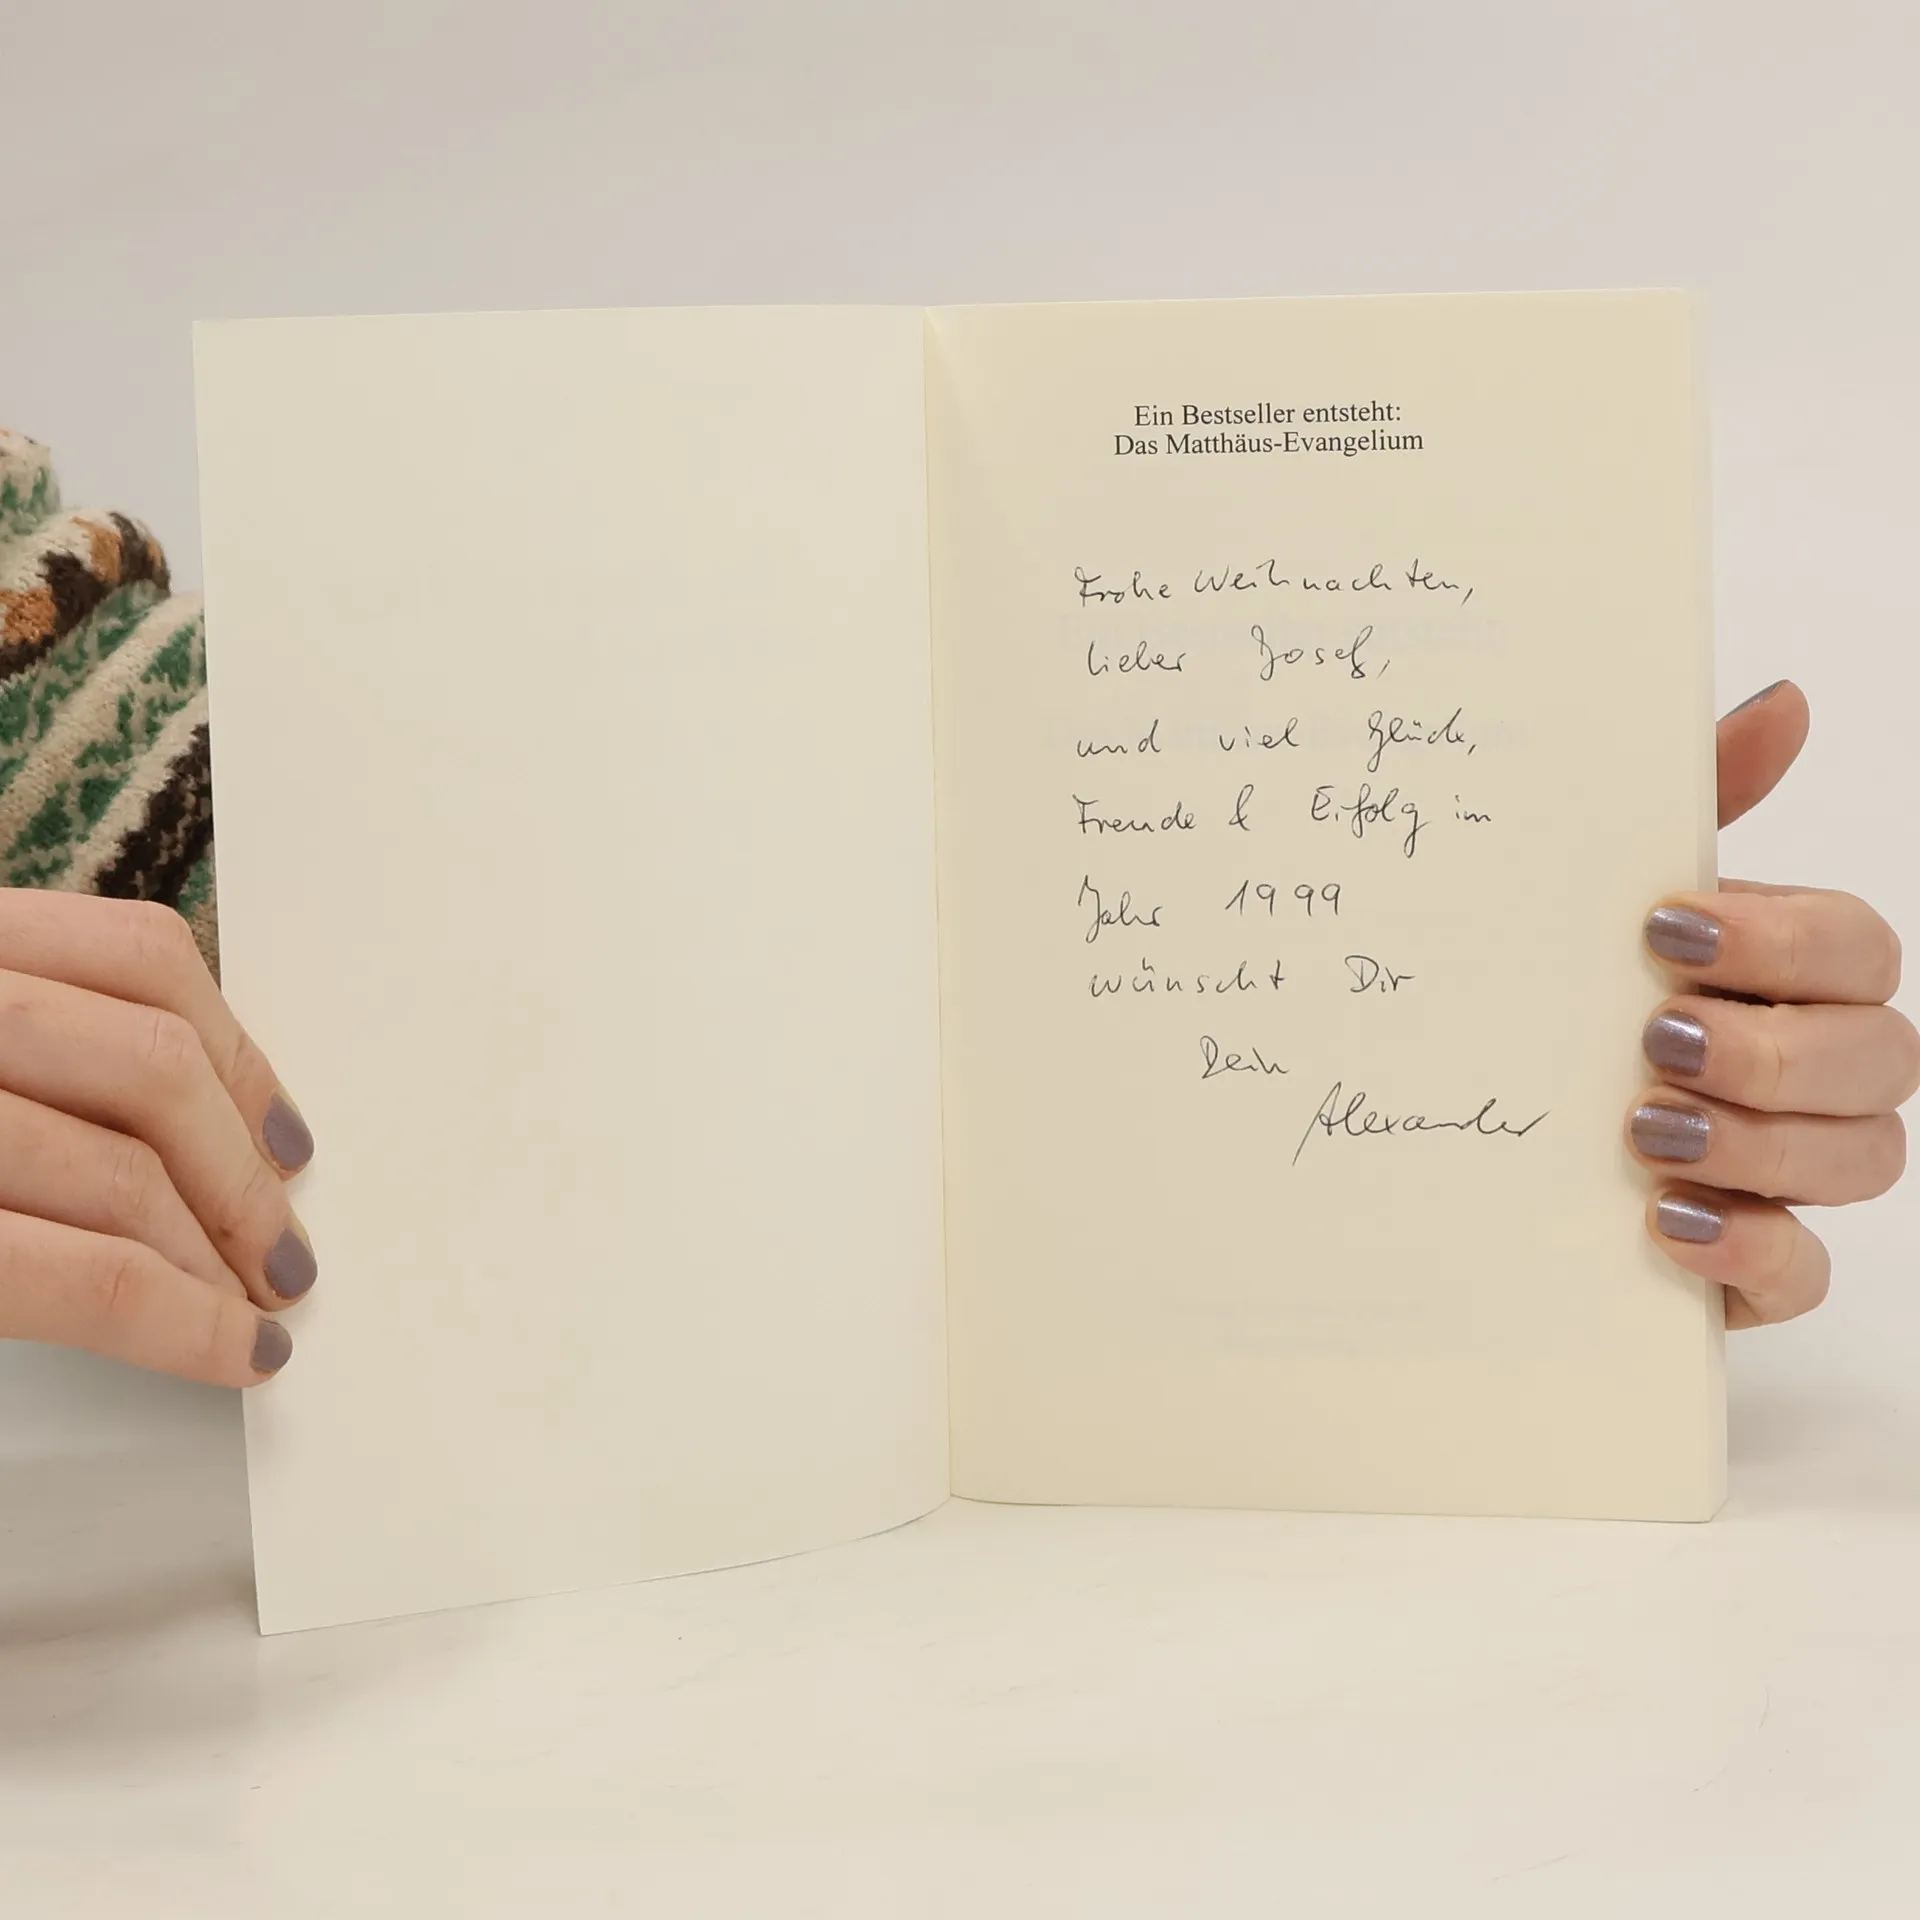 Ein Bestseller entsteht:
Das Matthäus-Evangelium
Frohe Weihnachten,
lieber Josef,
und viel Glück,
Freude & Erfolg im
Jahr 1999
wünscht Dir
Dein
Alexander